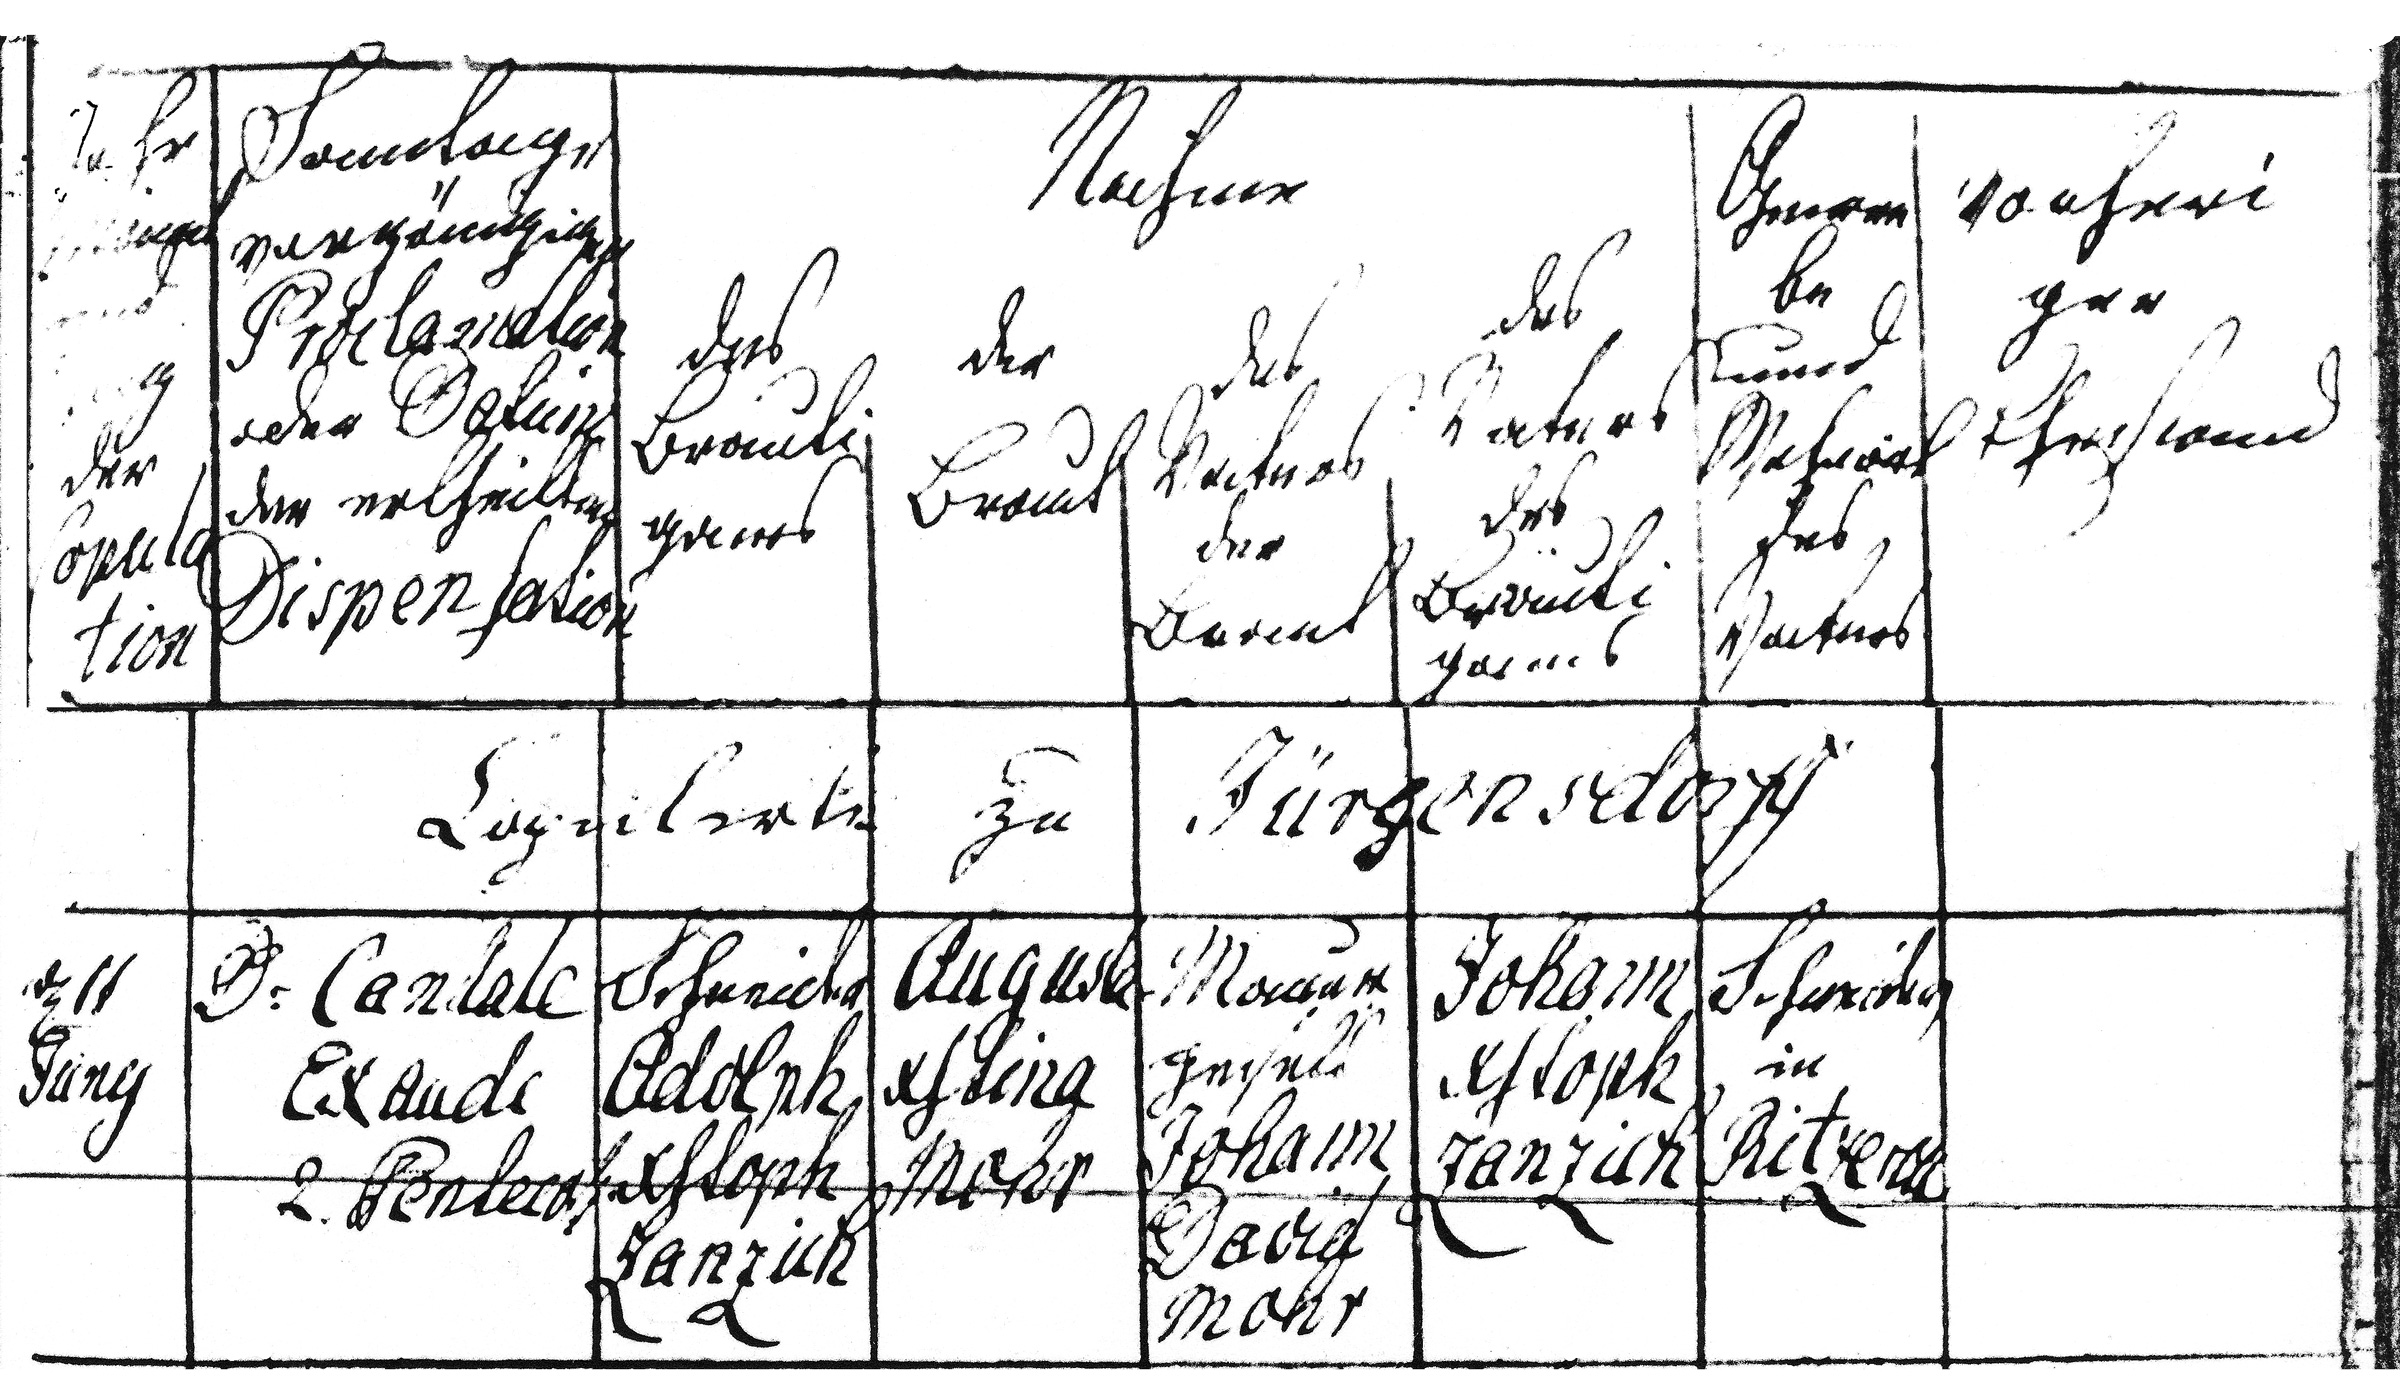 Jahr
und
der
Copula
tion
Sonntage
vorgängiger
Proclamation
oder Datum
der ertheilten
Dispensation
Nahme
des
Bräuti
gams
der
Braut
des
Vaters
der
Braut
des
Vaters
des
Bräuti
gams
Gewer
be
und
Wohnort
des
Vaters
vorheri
ger
Ehestand
Copulirte zu Jürgensdorff
11
Juny
D: Cantate
Exaudi
2. Pentecost
Schneider
Adolph
Xstoph
Zanzich
Augusta
Xstina
Mohr
Maurer
gesell
Johann
David
Mohr
Johann
Xstoph
Zanzich
Schneider
in
Ritzerow